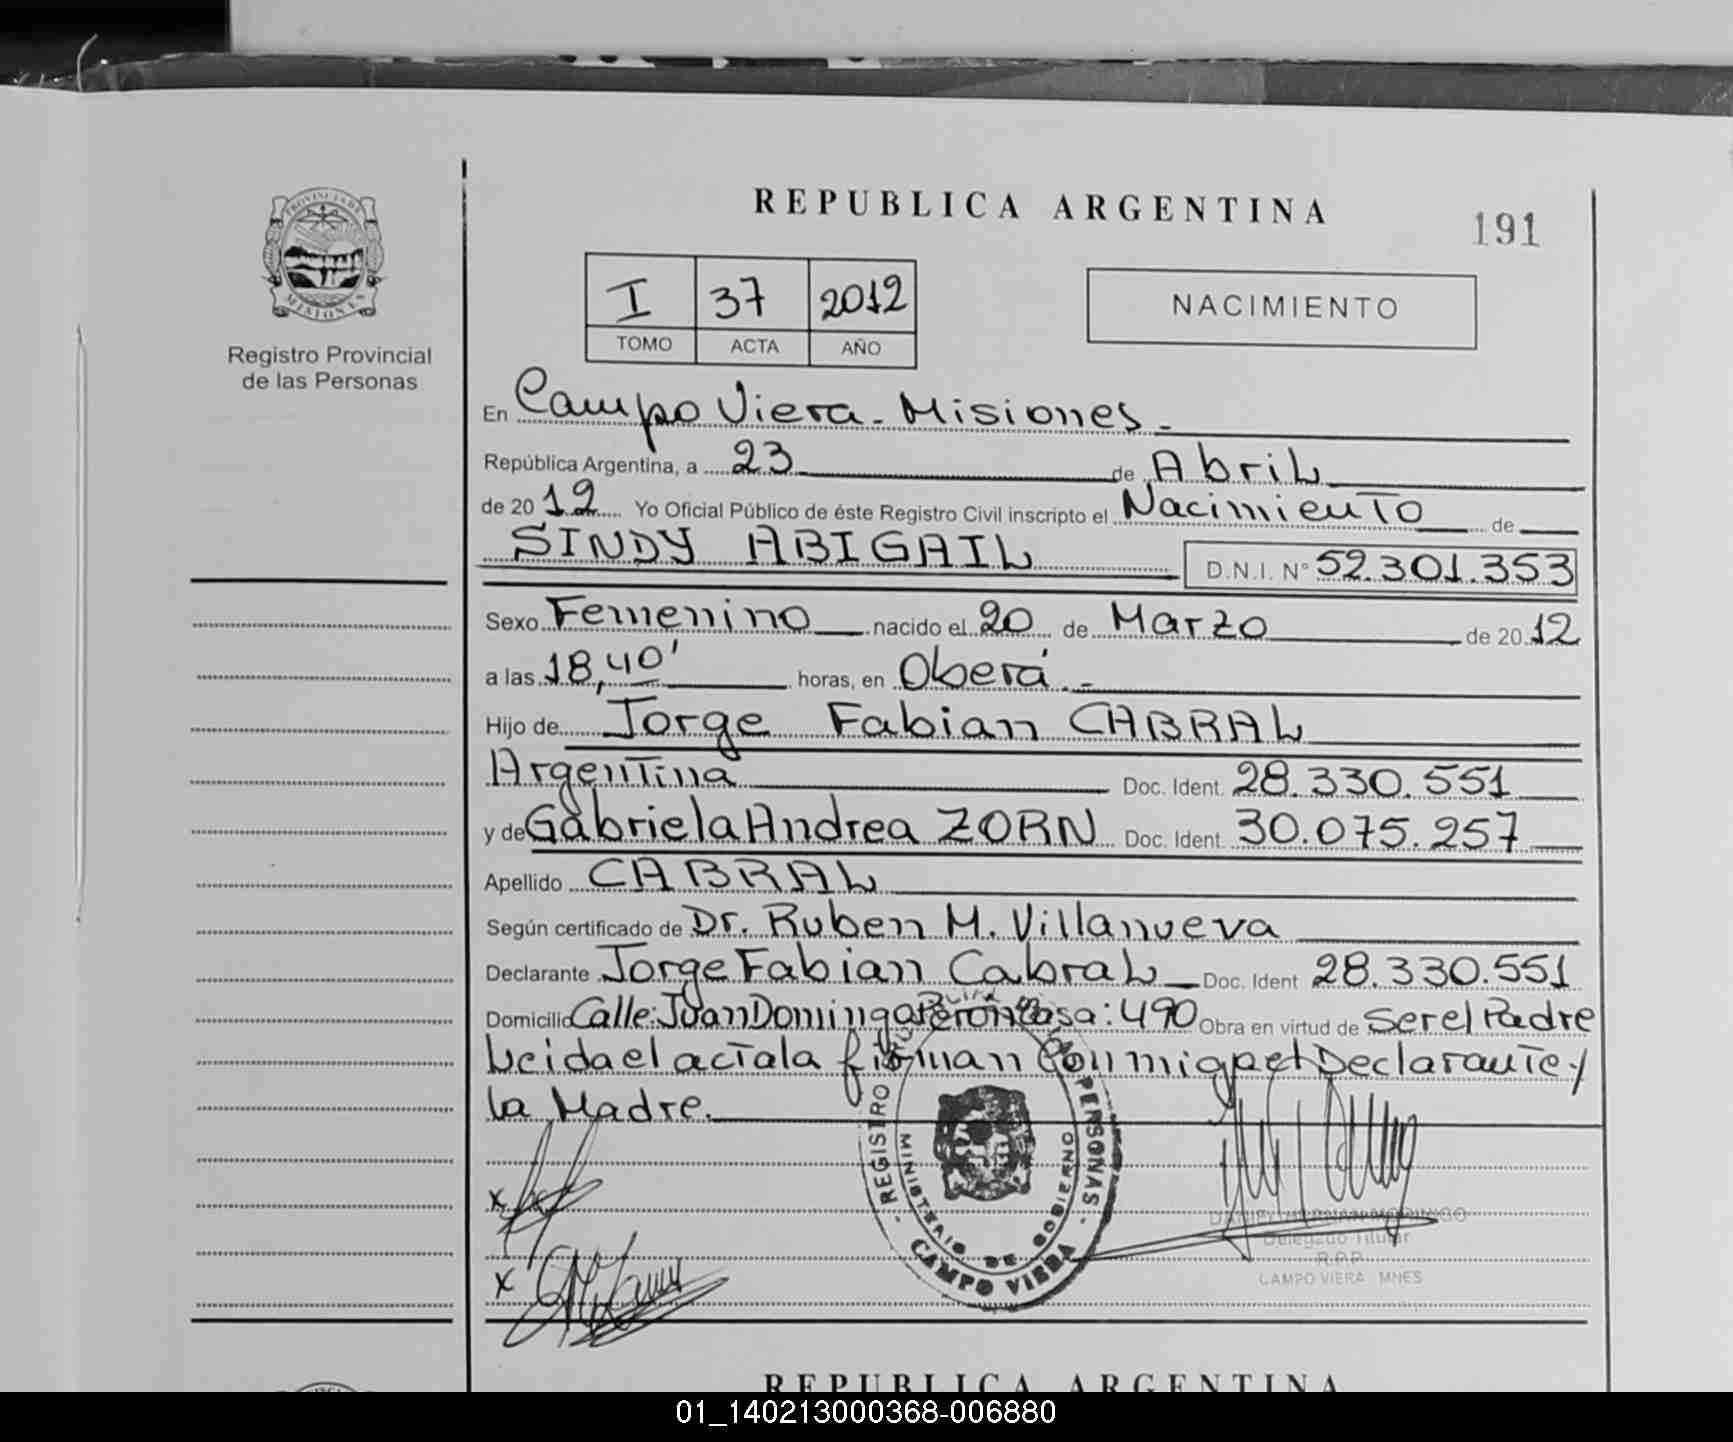 REPUBLICA ARGENTINA
191
PROVINCIA DE
MISIONES
Registro Provincial
de las Personas
I 37 2012
TOMO ACTA AÑO
NACIMIENTO
En Campo Viera - Misiones -
República Argentina, a 23 de Abril
de 2012 Yo Oficial Público de éste Registro Civil inscripto el Nacimiento de
SINDY ABIGAIL D.N.I. N° 52.301.353
Sexo Femenino nacido el 20 de Marzo de 2012
a las 18,40' horas, en Oberá.-
Hijo de Jorge Fabian CABRAL
Argentina Doc. Ident. 28.330.551
y de Gabriela Andrea ZORN Doc. Ident. 30.075.257
Apellido CABRAL
Según certificado de Dr. Ruben M. Villanueva
Declarante Jorge Fabian Cabral Doc. Ident 28.330.551
Domicilio Calle: Juan Domingo Peron Casa: 490 Obra en virtud de Ser el Padre
Leida el acta la firman conmigo el Declarante y
la Madre.
REGISTRO PERSONAS
MINISTERIO DE GOBIERNO
CAMPO VIERA
x
x
DANIEL HERNAN MORINIGO
Delegado Titular
R.P.P.
CAMPO VIERA MNES
REPUBLICA ARGENTINA
01_140213000368-006880